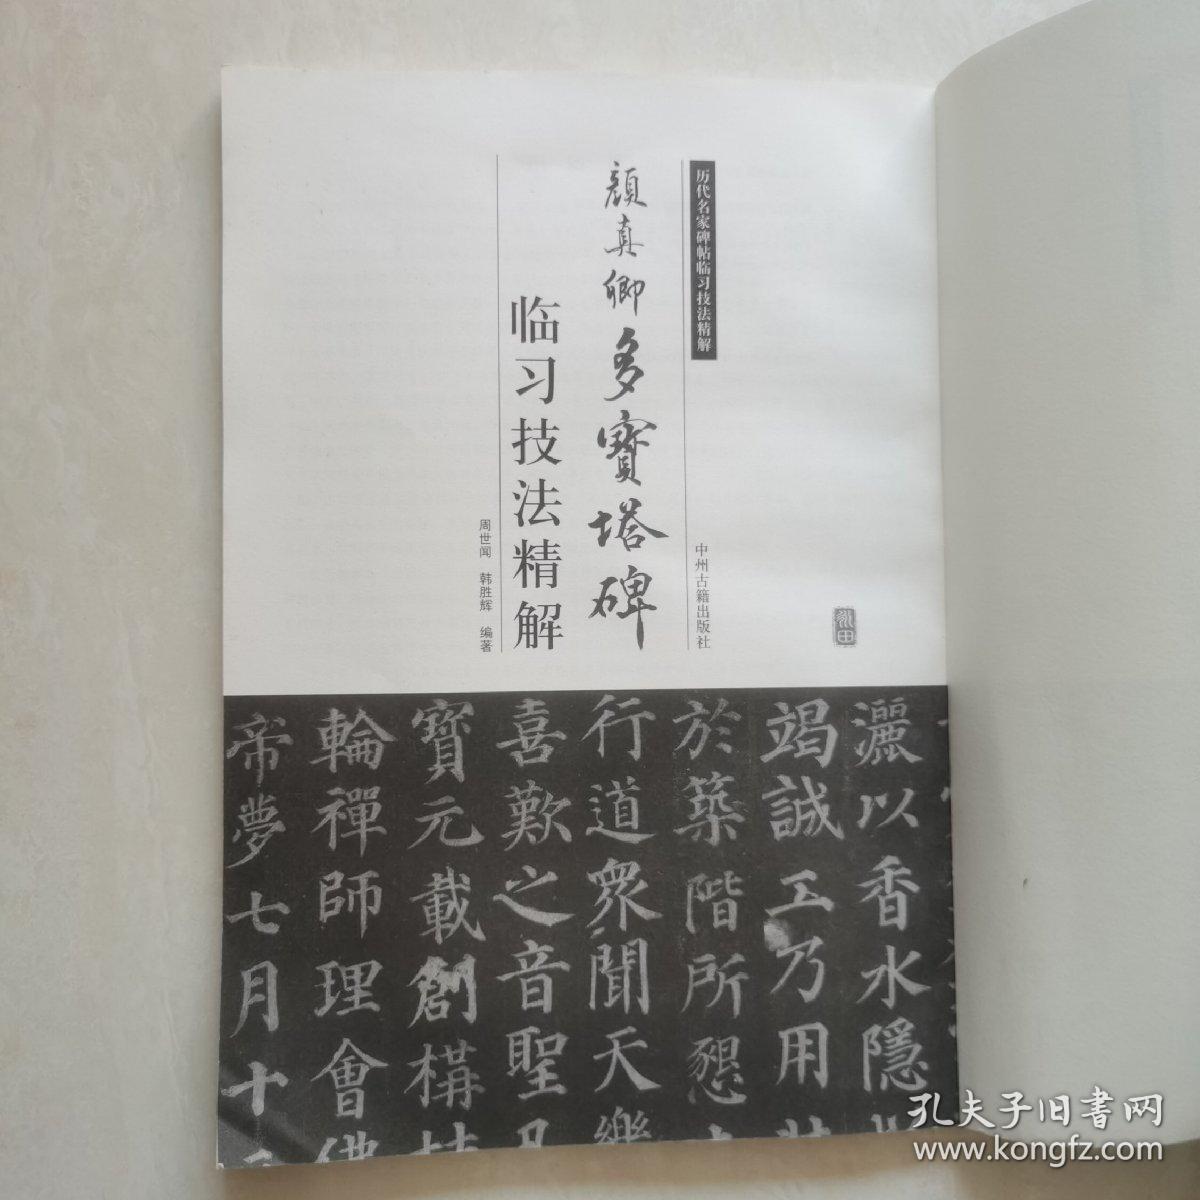 历代名家碑帖临习技法精解
中州古籍出版社
顔真卿多寳塔碑
临习技法精解
周世闻 韩胜辉 编著
灑以香水隱
竭誠工乃用
於築階所懇
行道衆聞天樂
喜歎之音聖
寳元載創構
輪禪師理會佛
帝夢七月十
孔夫子旧书网
www.kongfz.com